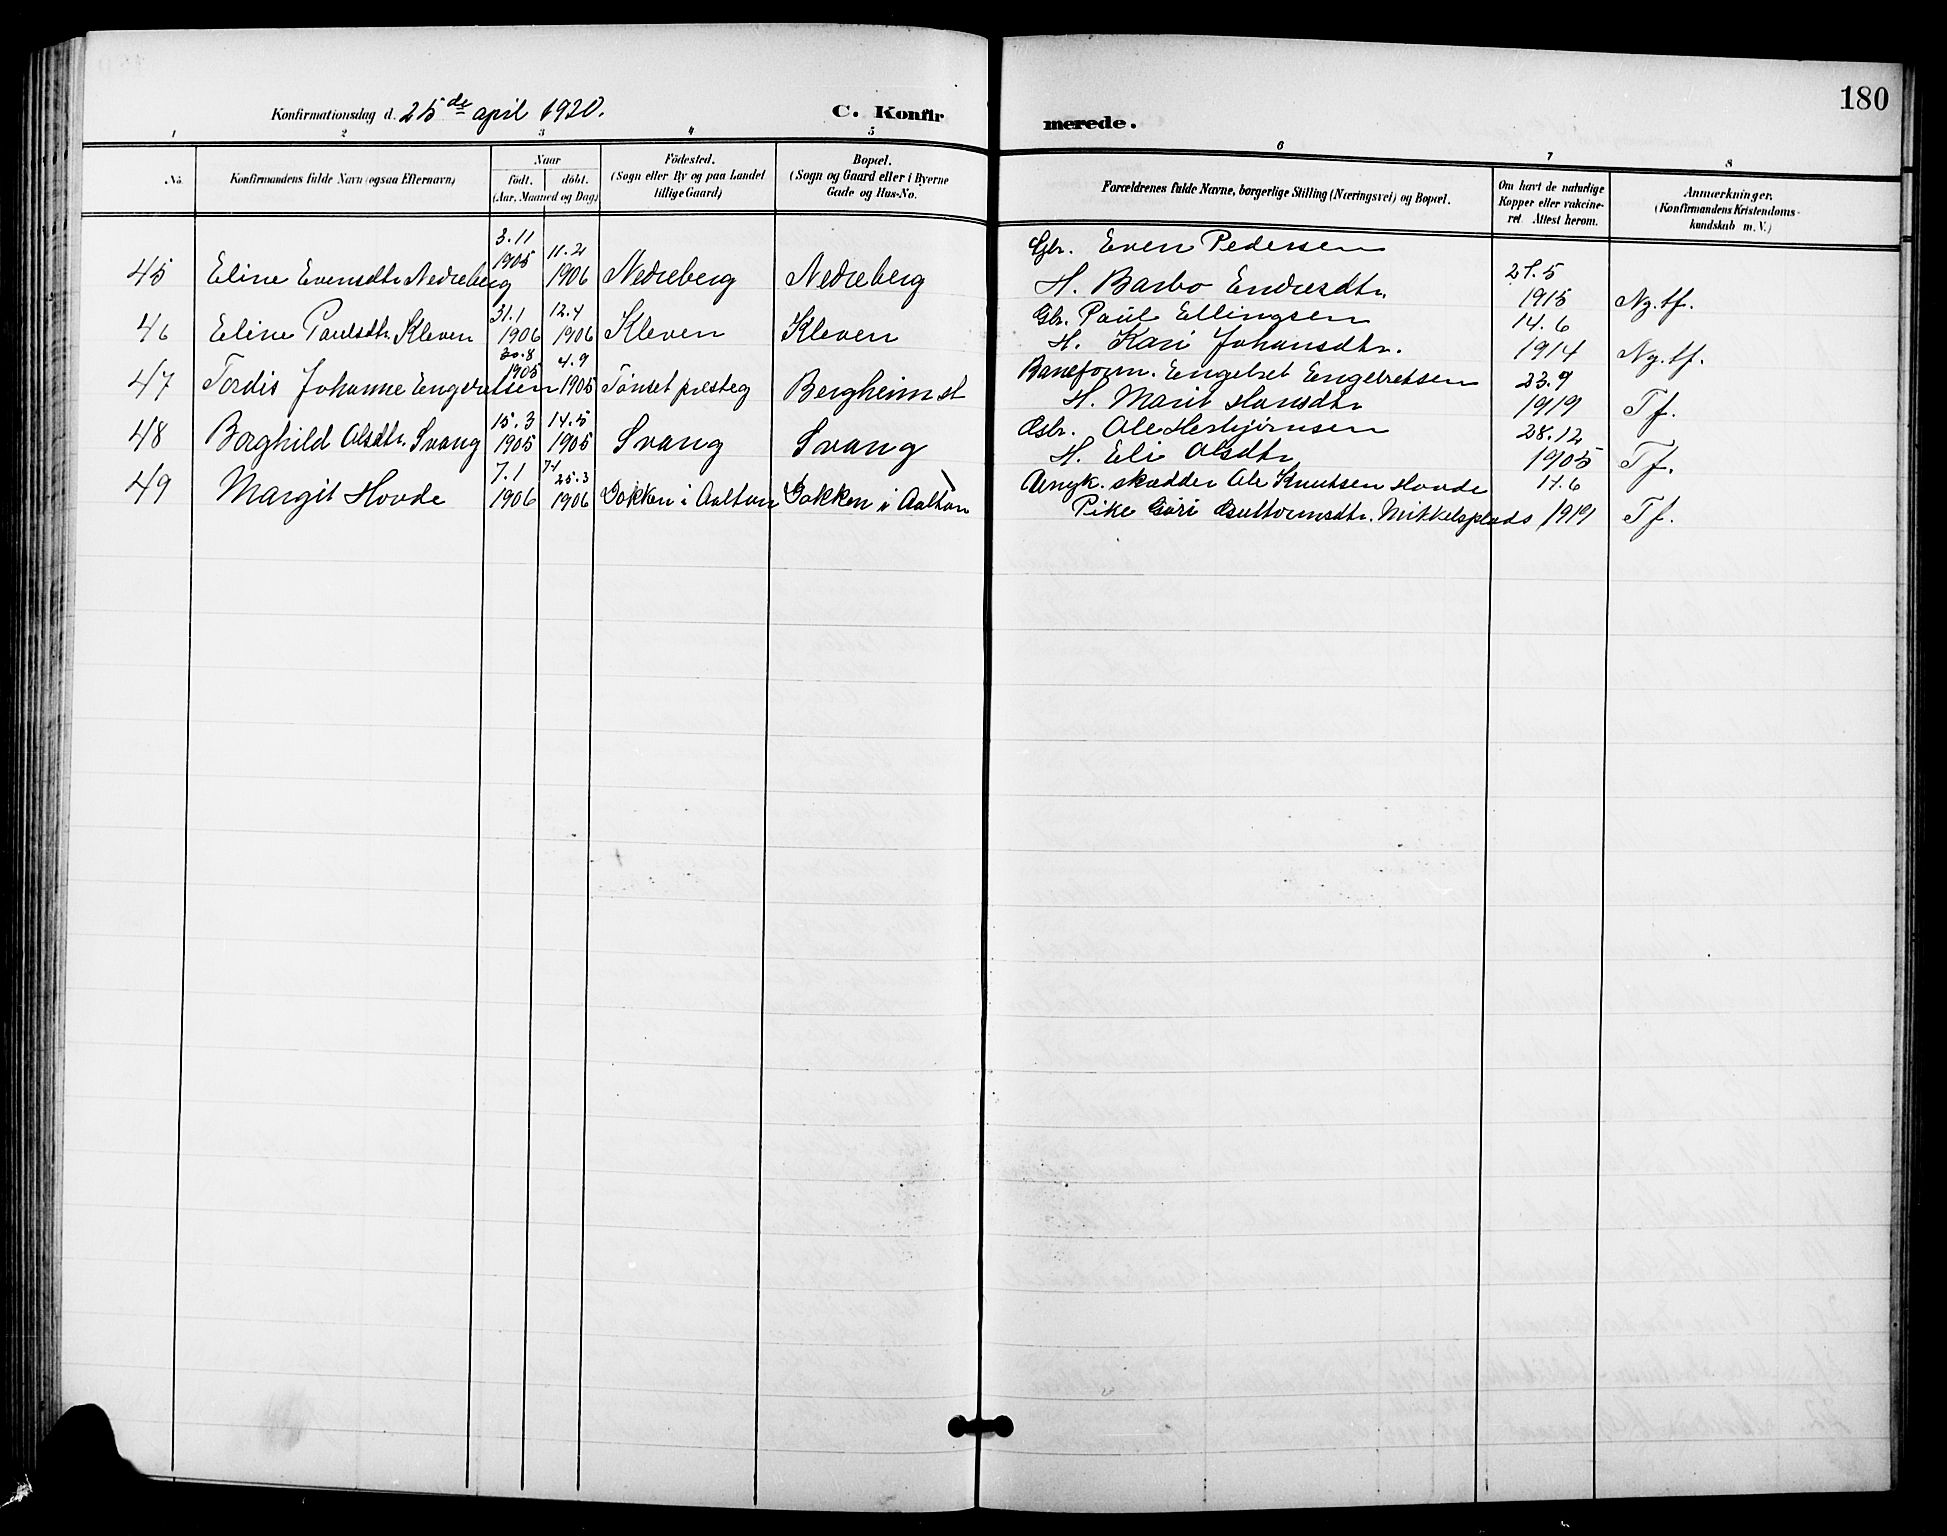 180
Konfirmationsdag d. 25de april 1920. C. Konfirmerede.
1 2 3 4 5 6 7 8
No. Konfirmandens fulde Navn (ogsaa Efternavn) Naar født. døbt. (Aar, Maaned og Dag) Födested. (Sogn eller By og paa Landet tillige Gaard) Bopæl. (Sogn og Gaard eller i Byerne Gade og Hus-No. Forældrenes fulde Navne, borgerlige Stilling (Næringsvei) og Bopæl. Om havt de naturlige Kopper eller vakcineret. Attest herom. Anmærkninger. (Konfirmandens Kristendomskundskab m. V.)
45 Eline Evensdtr. Nedreberg 3.11 1905 11.2 1906 Nedreberg Nedreberg Gbr. Even Pedersen
H. Barbo Endresdtr. 27.5 1915 Ng. tf.
46 Eline Paulsdtr. Kleven 31.1 1906 12.4 1906 Kleven Kleven Gbr. Paul Ellingsen
H. Kari Johansdtr. 14.6 1914 Ng. tf.
47 Tordis Johanne Engebretsen 30.8 1905 4.9 1905 Tønset presteg Bergheim st Baneform. Engebret Engebretsen
H. Marit Hansdtr 23.9 1919 Tf.
48 Borghild Olsdtr. Svang 15.3 1905 14.5 1905 Svang Svang Gbr. Ole Herbjørnsen
H. Eli Olsdtr 28.12 1905 Tf.
49 Margit Hovde 7.1 1906 25.3 1906 Bakken i Aalton Bakken i Aalton Ungk. skrædder Ole Knutsen Hovde
Pike Guri Guttormsdtr. Mikkelsplads 17.6 1919 Tf.